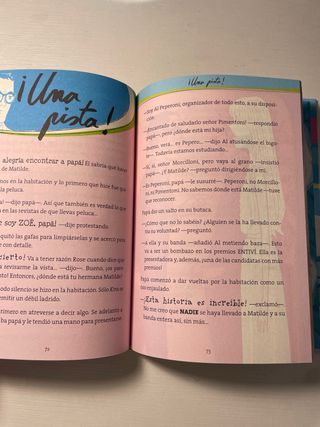 ¡Una
pista!
alegría encontrar a papá! Él sabría qué
de Matilde.
en la habitación y lo primero que hice fue
la peluca.
—dijo papá—. Así que también es verdad lo que
en las revistas de que llevas peluca...
soy ZOÉ, papá! —dije protestando.
quitó las gafas para limpiárselas y se acercó para
con detalle.
cierto! Va a tener razón Rose cuando dice que
revisarme la vista... —dijo—. Bueno, ¡os pon
Entonces, ¿dónde está tu hermana Matilde?
silencio se hizo en la habitación. Sólo Kira se
emitir un débil ladrido.
primero en atreverse a decir algo. Se adelantó a
papá y le tendió una mano para presentarse.
72
¡Una pista!
—Soy Al Peperoni, organizador de todo esto, a su disposi-
ción.
—¡Encantado de saludarlo señor Pimentoni! —respondió
papá—, pero ¿dónde está mi hija?
—Bueno, verá... es Pepero... —dijo Al atusándose el bigo-
te—. Todavía estamos estudiando...
—Sí, sí, señor Morcilloni, pero vaya al grano —insistió
papá—. ¿Y Matilde? —preguntó dirigiéndose a mí.
—Es Peperoni, papá —le susurré—. Peperoni, no Morcillo-
ni, ni Pimentoni. No sabemos dónde está Matilde —tuve
que reconocer.
Papá dio un salto en su butaca.
—¿Cómo que no lo sabéis? ¿Alguien se la ha llevado con-
tra su voluntad? —preguntó.
—A ella y su banda —añadió Al metiendo baza—. Esto
va a ser un bombazo en los premios ENTIVÍ. Ella es la
presentadora y, además, ¡una de las candidatas con más
premios!
Papá empezó a dar vueltas por la habitación como un
león enjaulado.
—¡Esta historia es increíble! —exclamó—.
No me creo que NADIE se haya llevado a Matilde y su
banda esera así, sin más...
73